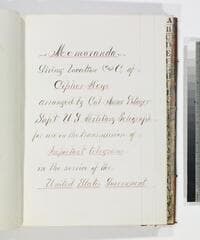 Memoranda
Giving Location &c, of
Cipher Keys
arranged by Col. Anson Stager
Supt U.S. Military Telegraph
for use in the transmission of
Important Telegrams
in the service of the
United States Government